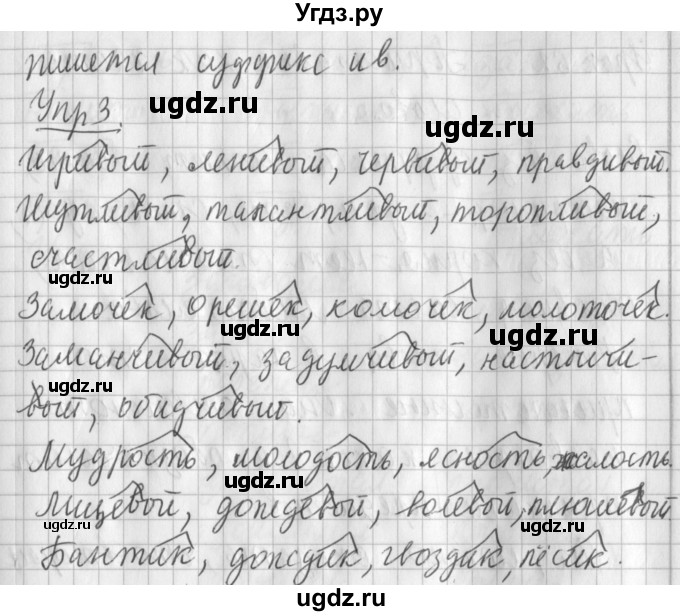 Угдз.ру
пишется суффикс ив.
ugdz.ru
Упр 3.
ugdz.ru
Игривый, ленивый, червивый, правдивый.
Шутливый, талантливый, торопливый,
счастливый.
ugdz.ru
Замочек, орешек, комочек, молоточек.
ugdz.ru ugdz.ru
Заманчивый, задумчивый, настойчи-
ugdz.ru
вый, обидчивый.
Мудрость, молодость, ясность, жалость.
Лицевой, дождевой, волевой, плюшевый.
ugdz.ru ugdz.ru
Бантик, дождик, гвоздик, песик.
ugdz.ru